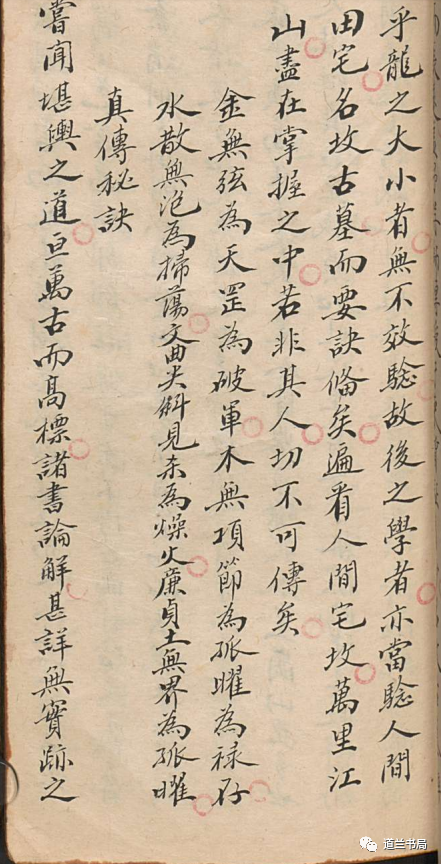 乎龍之大小者無不效騐故後之學者亦當騐人間
田宅名坟古墓而要訣俻矣遍看人間宅坟萬里江
山盡在掌握之中若非其人切不可傳矣
金無弦為天罡為破軍木無項節為孤曜為禄存
水散無泡為掃蕩文曲尖斜見杀為燥火廉貞土無界為孤曜
真傳秘訣
嘗聞堪輿之道亘萬古而髙標諸書論解甚詳無實跡之
道兰书局